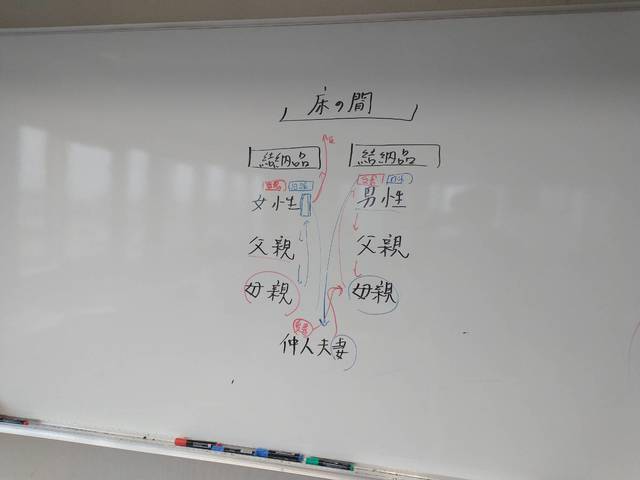 床の間
結納品 結納品
女性 男性
父親 父親
母親 母親
仲人夫妻